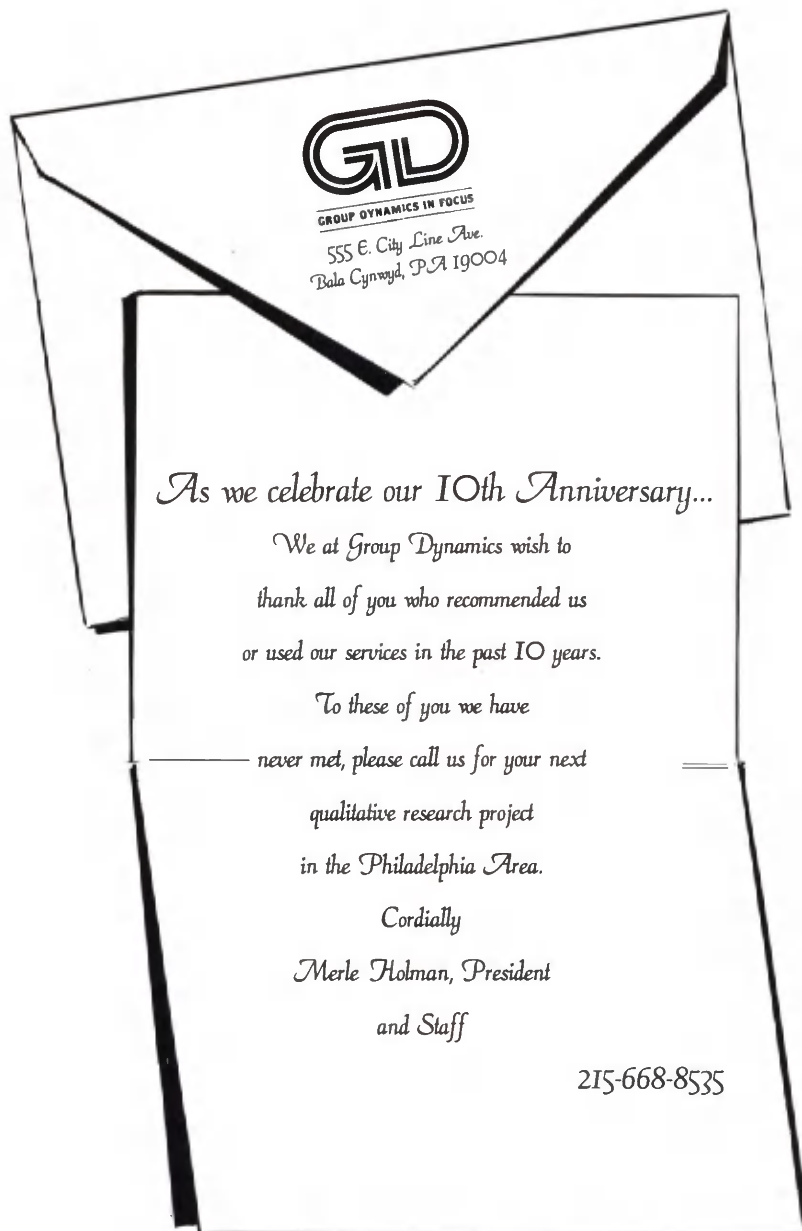 GD
GROUP DYNAMICS IN FOCUS
555 E. City Line Ave.
Bala Cynwyd, PA 19004
As we celebrate our 10th Anniversary...
We at Group Dynamics wish to
thank all of you who recommended us
or used our services in the past 10 years.
To these of you we have
never met, please call us for your next
qualitative research project
in the Philadelphia Area.
Cordially
Merle Holman, President
and Staff
215-668-8535